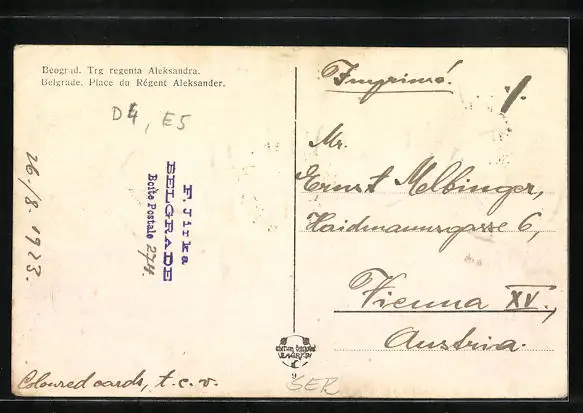 Beograd. Trg regenta Aleksandra.
Belgrade. Place du Régent Aleksander.
D4, E5
26./8. 1923.
F. Jirka
BELGRADE
Boîte Postale 274.
Coloured cards, t. c. v.
Imprimé.
Mr.
Ernst Melbinger,
Haidmannsgasse 6,
Vienna XV.,
Austria.
ZAGREB
9
SER